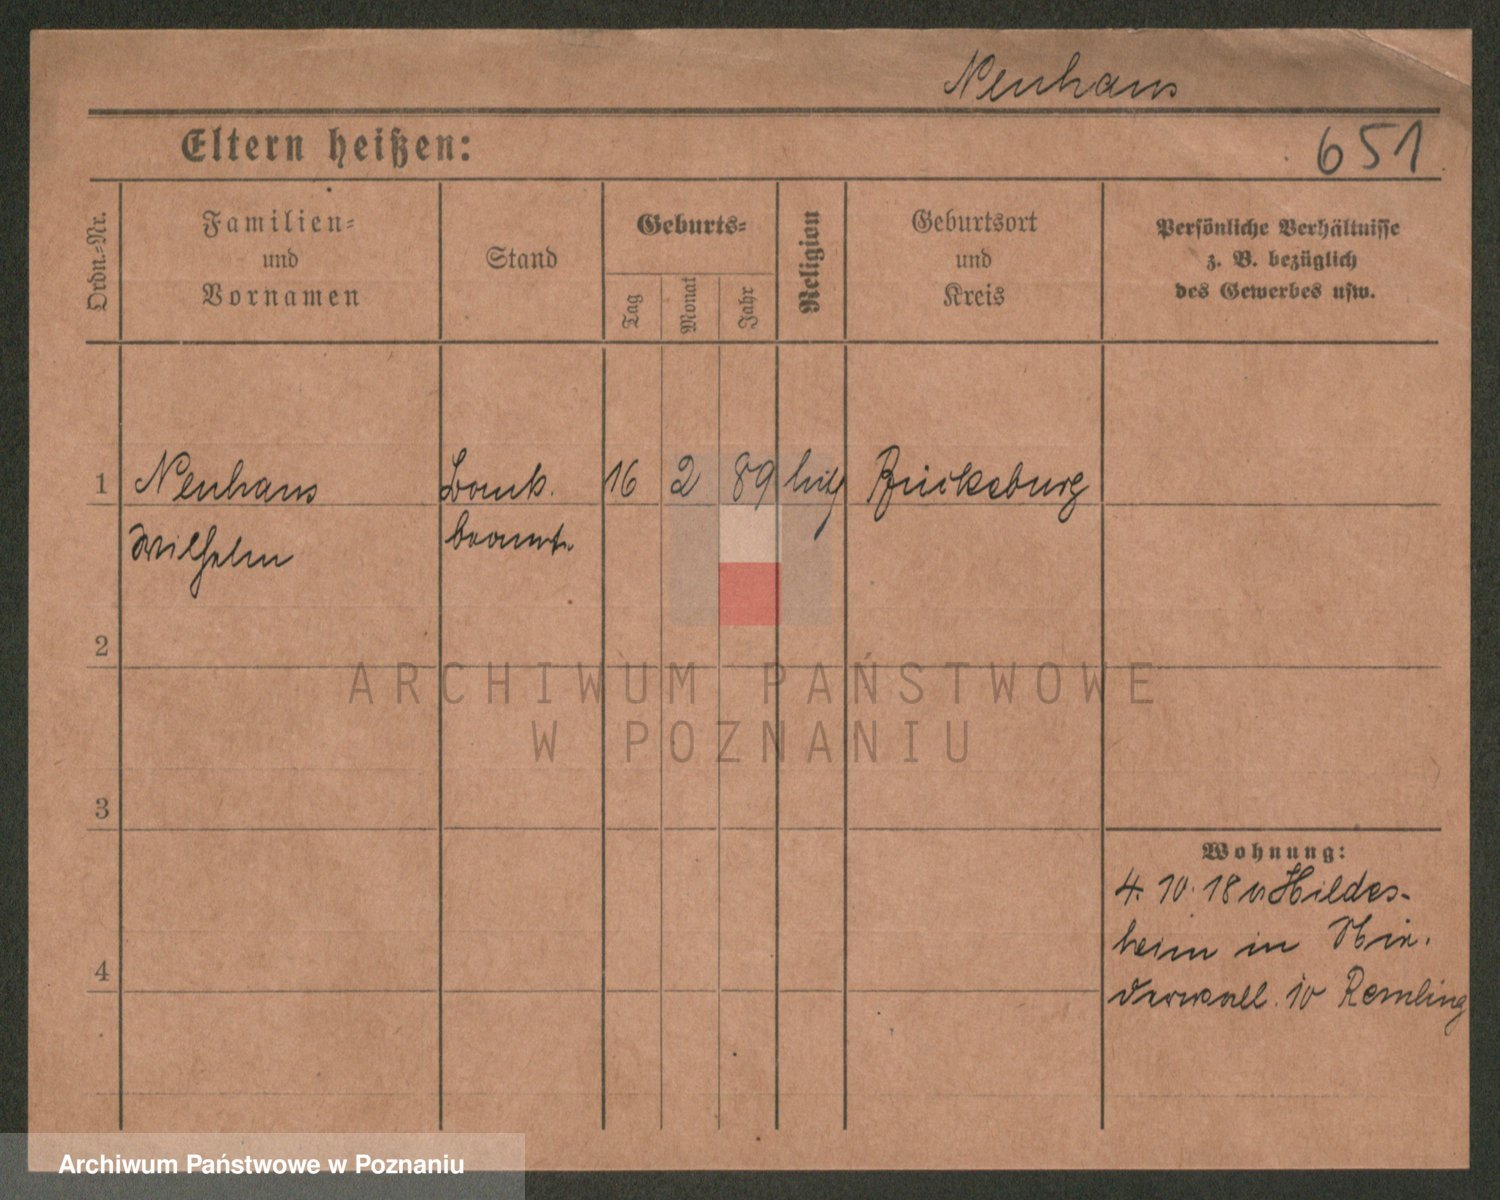 Neuhaus
Eltern heißen:
651
Ordn.-Nr.
Familien-
und
Vornamen
Stand
Geburts-
Tag
Monat
Jahr
Religion
Geburtsort
und
Kreis
Persönliche Verhältnisse
z. B. bezüglich
des Gewerbes usw.
1 Neuhaus Bank. 16 2 89 Bückeburg
Wilhelm beamt.
2
ARCHIWUM PAŃSTWOWE
W POZNANIU
3
Wohnung:
4. 10. 18 v Hildes-
heim in
4
10 Remling
Archiwum Państwowe w Poznaniu